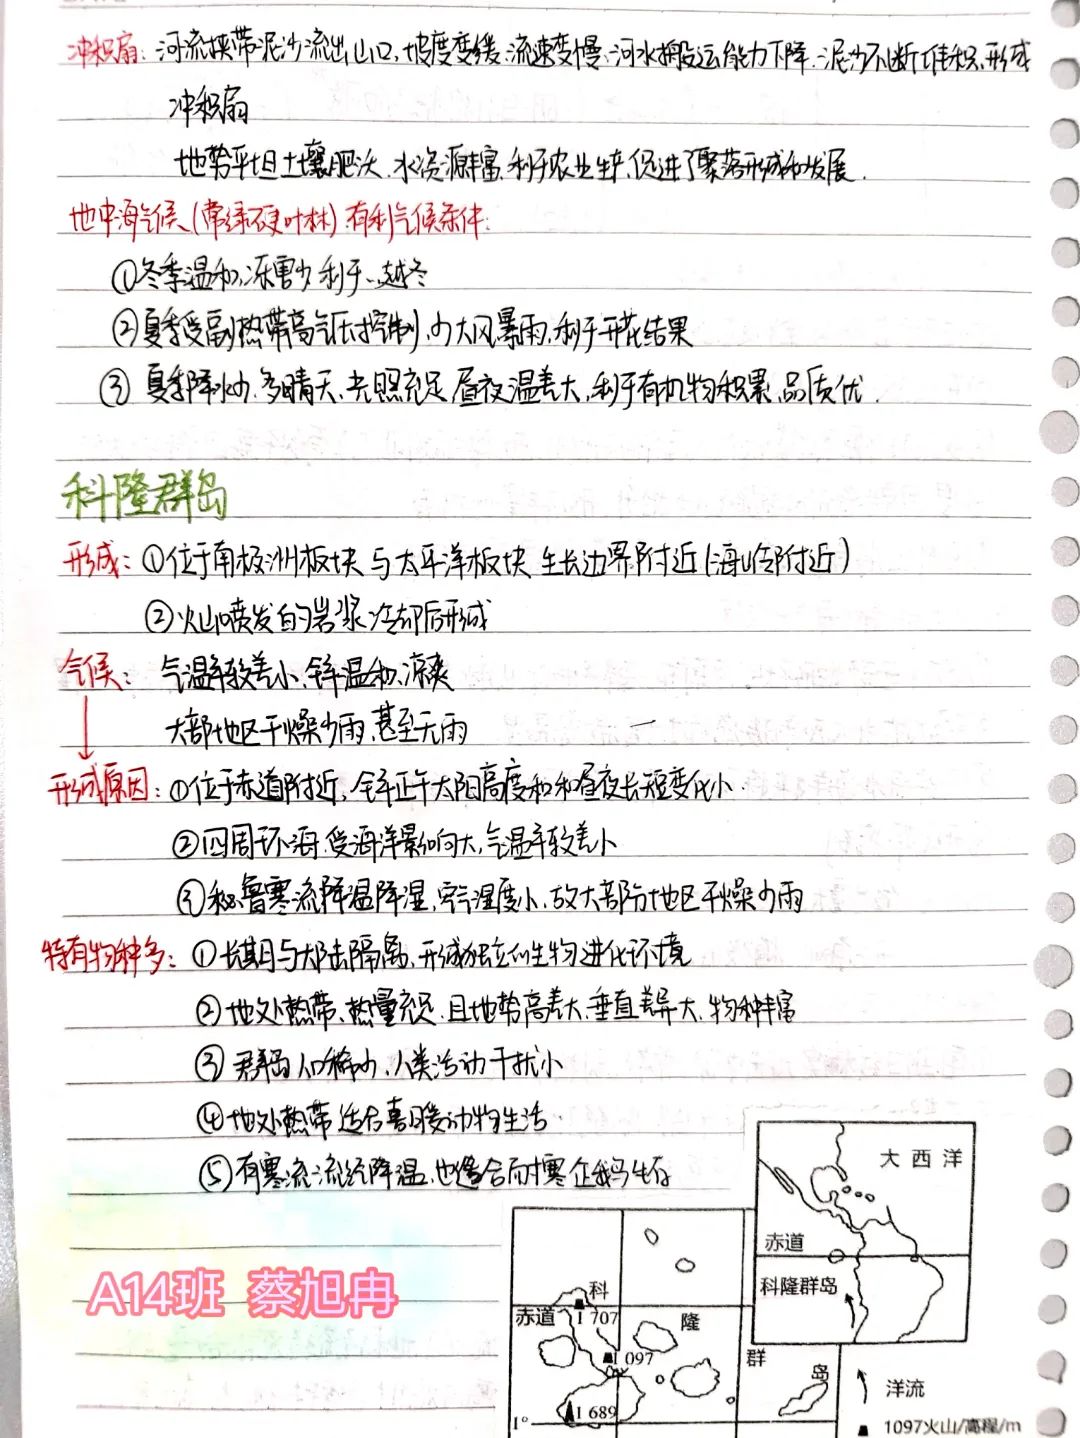 冲积扇：河流挟带泥沙流出山口，坡度变缓，流速变慢，河水搬运能力下降，泥沙不断堆积，形成
冲积扇
地势平坦土壤肥沃，水资源丰富，利于农业生产，促进了聚落形成和发展．
地中海气候(常绿硬叶林)有利气候条件：
①冬季温和，冻害少利于、越冬
②夏季受副热带高气压控制，少大风暴雨，利于开花结果
③夏季降水少，多晴天、光照充足，昼夜温差大，利于有机物积累，品质优．
科隆群岛
形成：①位于南极洲板块与太平洋板块生长边界附近(海岭附近)
②火山喷发的岩浆冷却后形成
气候：气温年较差小、全年温和、凉爽
大部地区干燥少雨，甚至无雨
形成原因：①位于赤道附近，全年正午太阳高度和和昼夜长短变化小．
②四周环海，受海洋影响大，气温年较差小
③秘鲁寒流降温降湿，空气湿度小，故大部分地区干燥少雨
特有物种多：①长期与大陆隔离，形成独立的生物进化环境
②地处热带、热量充足，且地势高差大，垂直差异大，物种丰富
③群岛人口稀少，人类活动干扰小
④地处热带适合喜暖动物生活
⑤有寒流流经降温，也适合耐寒企鹅生存
大西洋
赤道
科隆群岛
科
赤道
1 707
隆
1 097
群
岛
1 689
1°
洋流
1097火山/高程/m
A14班 蔡旭冉